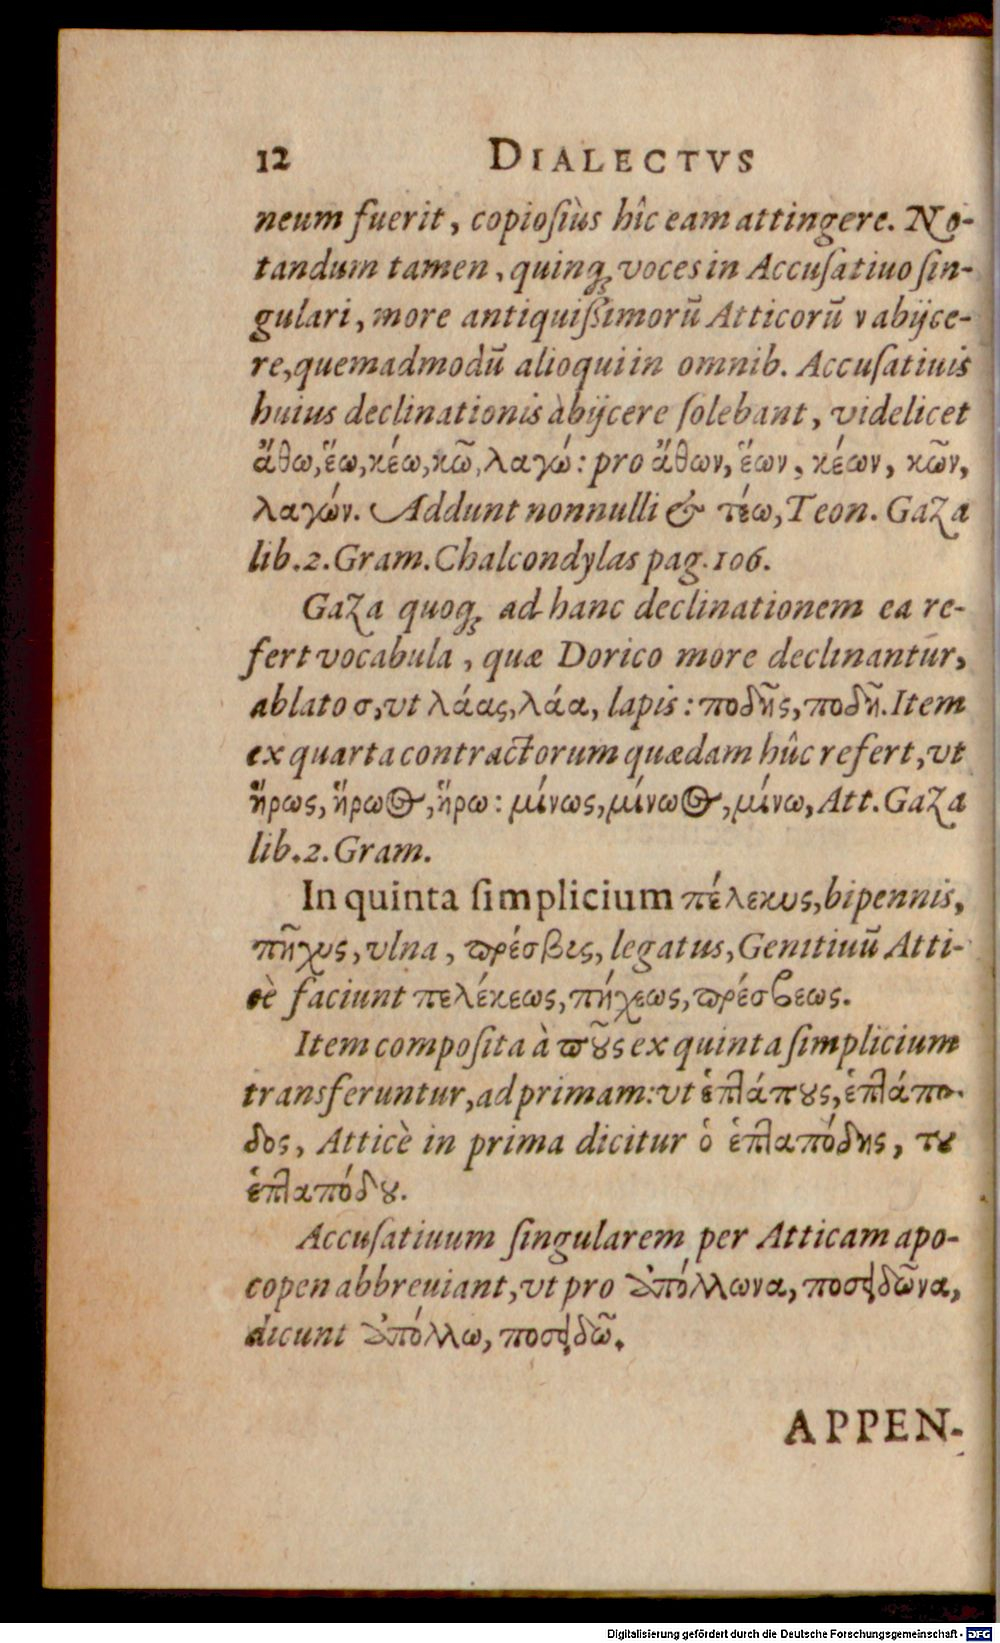 12 DIALECTVS
neum fuerit, copioſiùs hîc eam attingere. No-
tandum tamen, quinq; voces in Accuſatiuo ſin-
gulari, more antiquiſſimorũ Atticorũ ν abijce-
re, quemadmodũ alioqui in omnib. Accuſatiuis
huius declinationis abijcere ſolebant, videlicet
ἄθω, ἕω, κέω, κῶ, λαγώ: pro ἄθων, ἕων, κέων, κῶν,
λαγών. Addunt nonnulli & τέω, Teon. Gaza
lib. 2. Gram. Chalcondylas pag. 106.
Gaza quoq; ad hanc declinationem ea re-
fert vocabula, quæ Dorico more declinantur,
ablato σ, vt λάας, λάα, lapis: ποδῆς, ποδῆ. Item
ex quarta contractorum quædam hûc refert, vt
ἥρως, ἥρωος, ἥρω: μίνως, μίνωος, μίνω, Att. Gaza
lib. 2. Gram.
In quinta ſimplicium πέλεκυς, bipennis,
πῆχυς, vlna, πρέσβις, legatus, Genitiuũ Atti-
cè faciunt πελέκεως, πήχεως, πρέσβεως.
Item compoſita à ποῦς ex quinta ſimplicium
transferuntur, ad primam: vt ἑπτάπους, ἑπτάπο-
δος, Atticè in prima dicitur ὁ ἑπταπόδης, του
ἑπταπόδου.
Accuſatiuum ſingularem per Atticam apo-
copen abbreuiant, vt pro ἀπόλλωνα, ποσειδῶνα,
dicunt ἀπόλλω, ποσειδῶ.
APPEN-
Digitalisierung gefördert durch die Deutsche Forschungsgemeinschaft - DFG